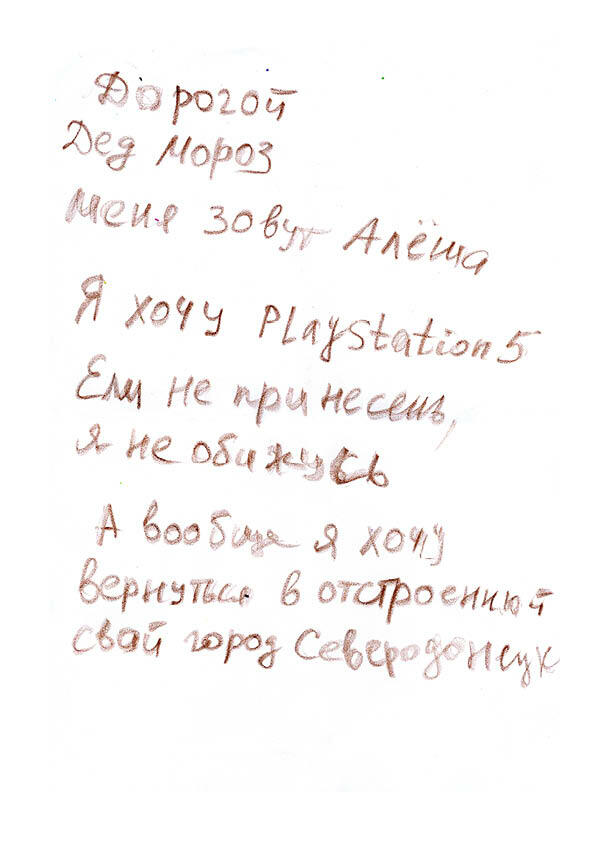 Дорогой
Дед мороз
меня зовут Алёша
Я хочу PlayStation 5
Если не принесешь,
я не обижусь
А вообще я хочу
вернуться в отстроенный
свой город Северодонецк